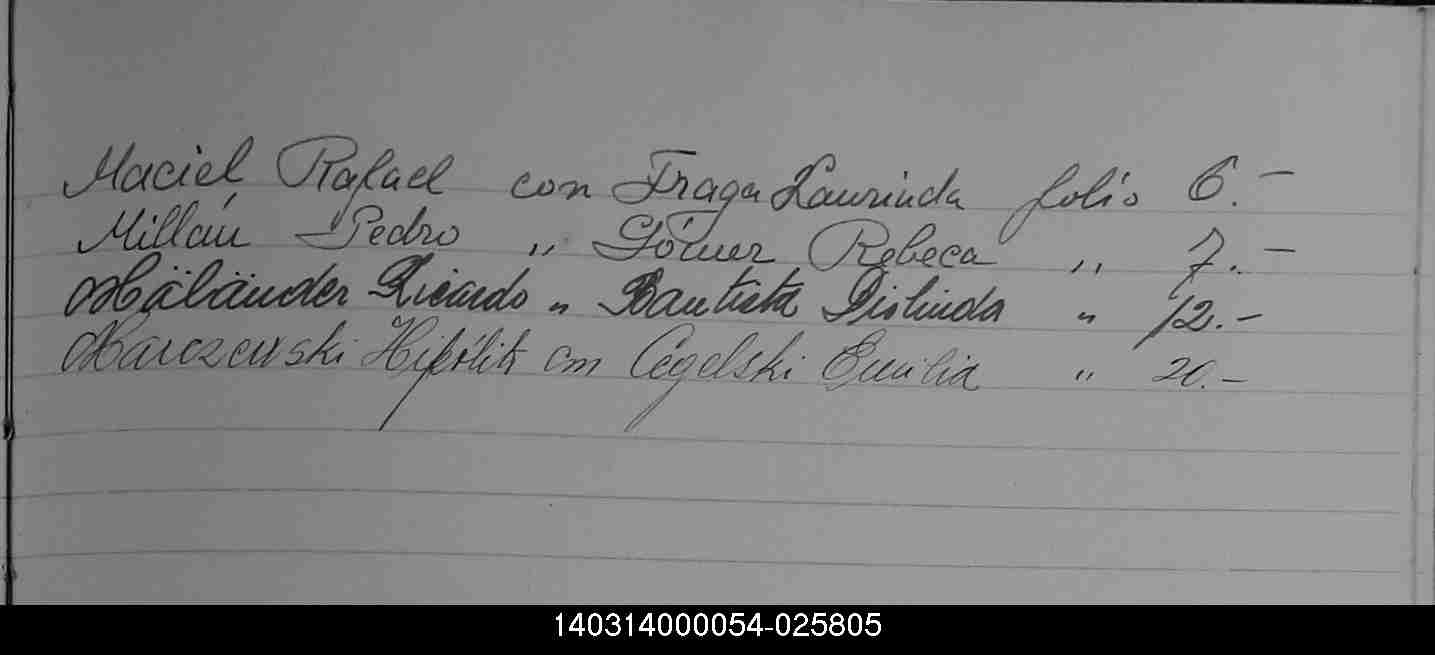 Maciel Rafael con Fraga Laurinda folio 6.-
Millán Pedro " Gómer Rebeca " 7.-
Mäländer Ricardo " Bautista " 12.-
Marczewski Hipólit con Cegelski Emilia " 20.-
140314000054-025805